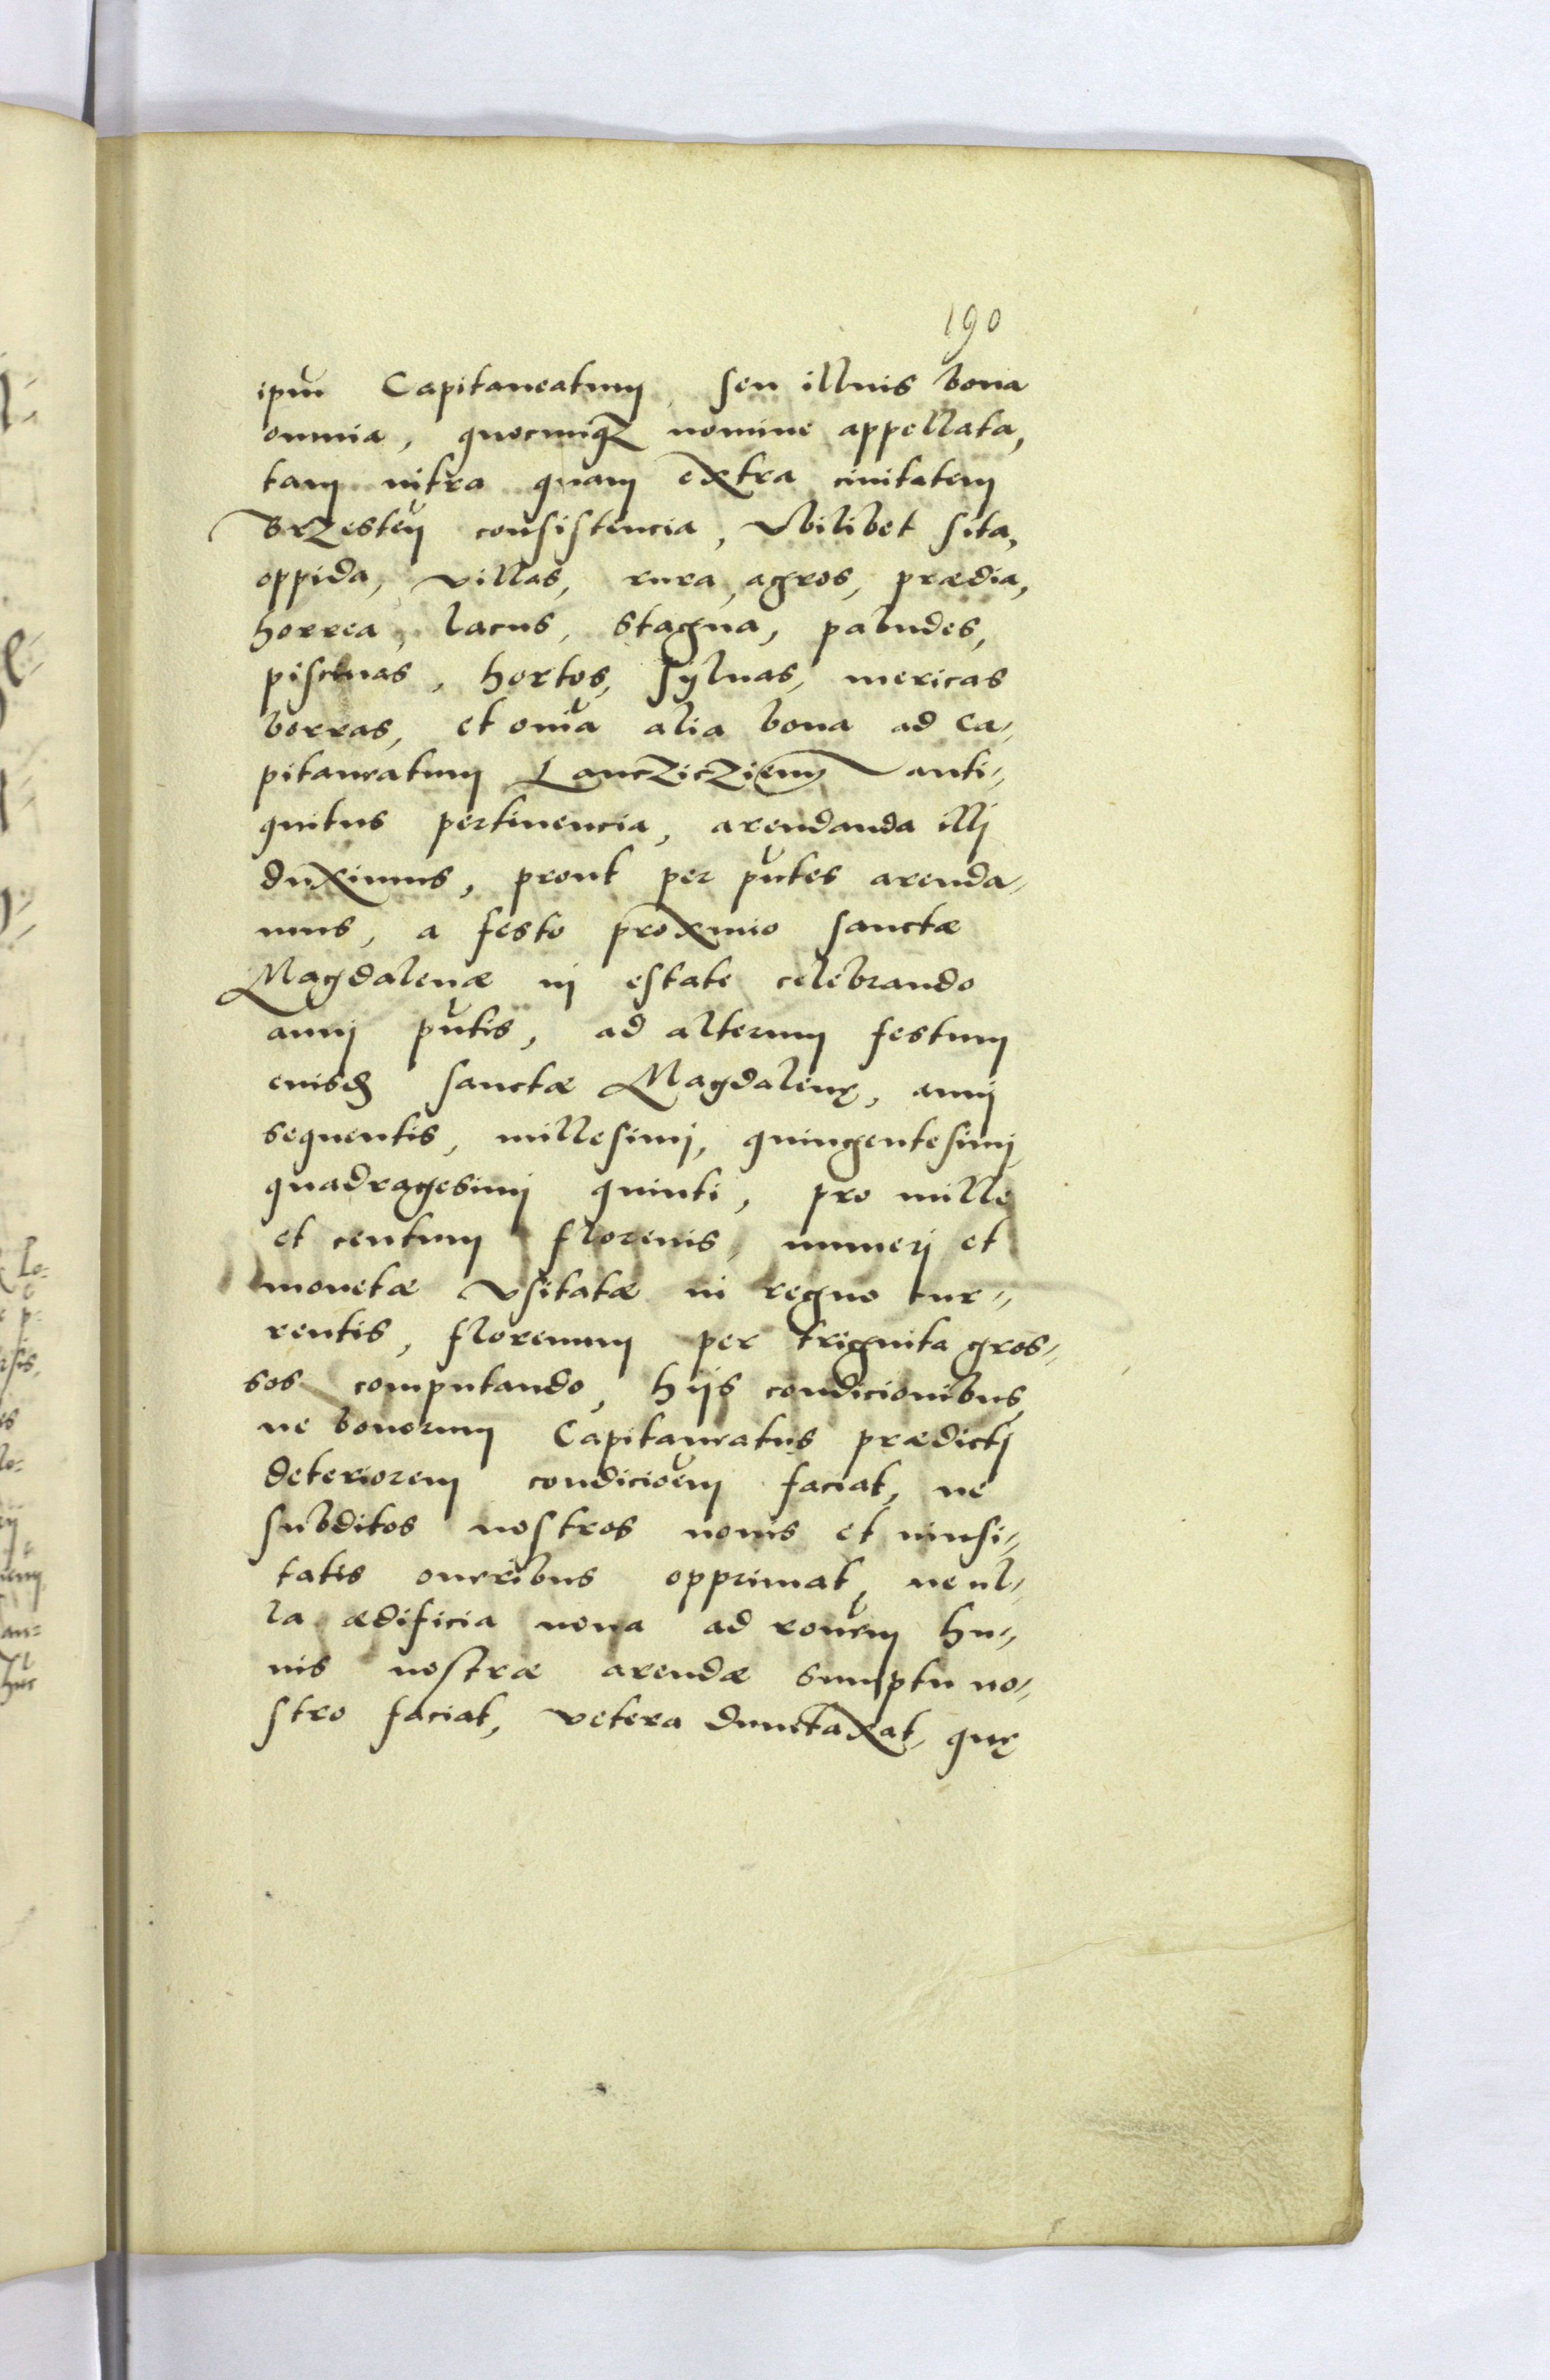 190
ipm̄ Capitaneatum, seu illius bona
omnia, quocunq3 nomine appellata,
tam intra quam extra ciuitatem
Brzesten̄ consistencia, Vbilibet sita,
oppida, villas, rura, agros, prædia,
horrea, lacus, stagna, paludes,
piscinas, hortos, syluas, mericas
borras, et om̄ia alia bona ad Ca⸗
pitaneatum Lancziczien̄ anti⸗
quitus pertinencia, arendanda illj
duximus, prout per p̄ntes arenda⸗
mus, a festo proximo sanctæ
Magdalenæ in estate celebrando
annj p̄ntis, ad alterum festum
eiusd̄ sanctæ Magdalenę, annj
sequentis, millesimj, quingentesimj
quadragesimj quinti, pro mille
et centum florenis, numerj et
monetæ vsitatæ in regno cur⸗
rentis, florenum per triginta gros⸗
sos computando, hijs condicionibus,
ne bonorum Capitaneatus prædictj
deteriorem condicioēm faciat, ne
subditos nostros nouis et inusi⸗
tatis oneribus opprimat, ne ul⸗
la ædificia noua ad roēm hu⸗
ius nostræ arendæ sumptu no⸗
stro faciat, vetera dunctaxat, quę